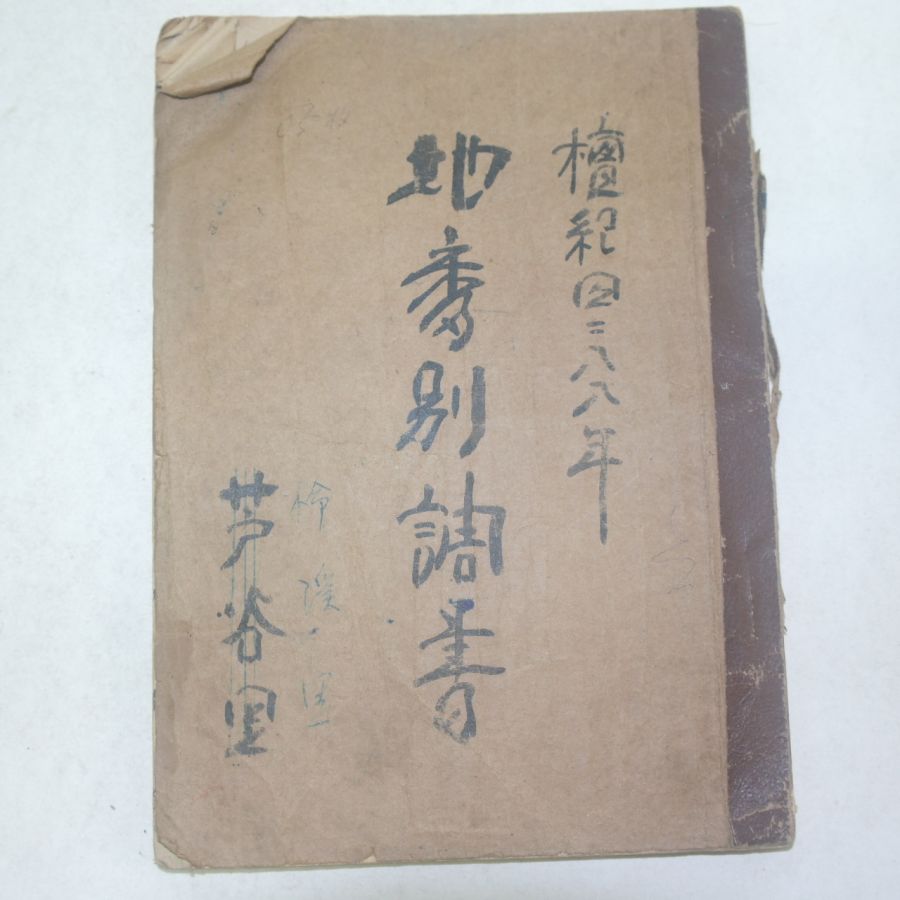 檀紀四二八八年
地番別調書
芦谷里